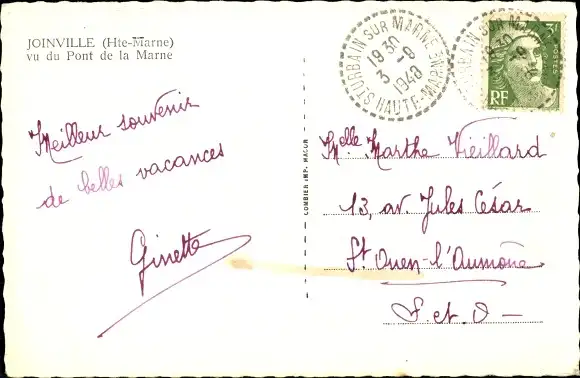 JOINVILLE (Hte-Marne)
vu du Pont de la Marne
Meilleur souvenir
de belles vacances
Ginette
COMBIER IMP. MACON
ST URBAIN SUR MARNE
HAUTE-MARNE
1930
3-8
1948
3F
POSTES
RF
Melle Marthe Vieillard
13, av. Jules César
St. Ouen-l'Aumône
S. et O-